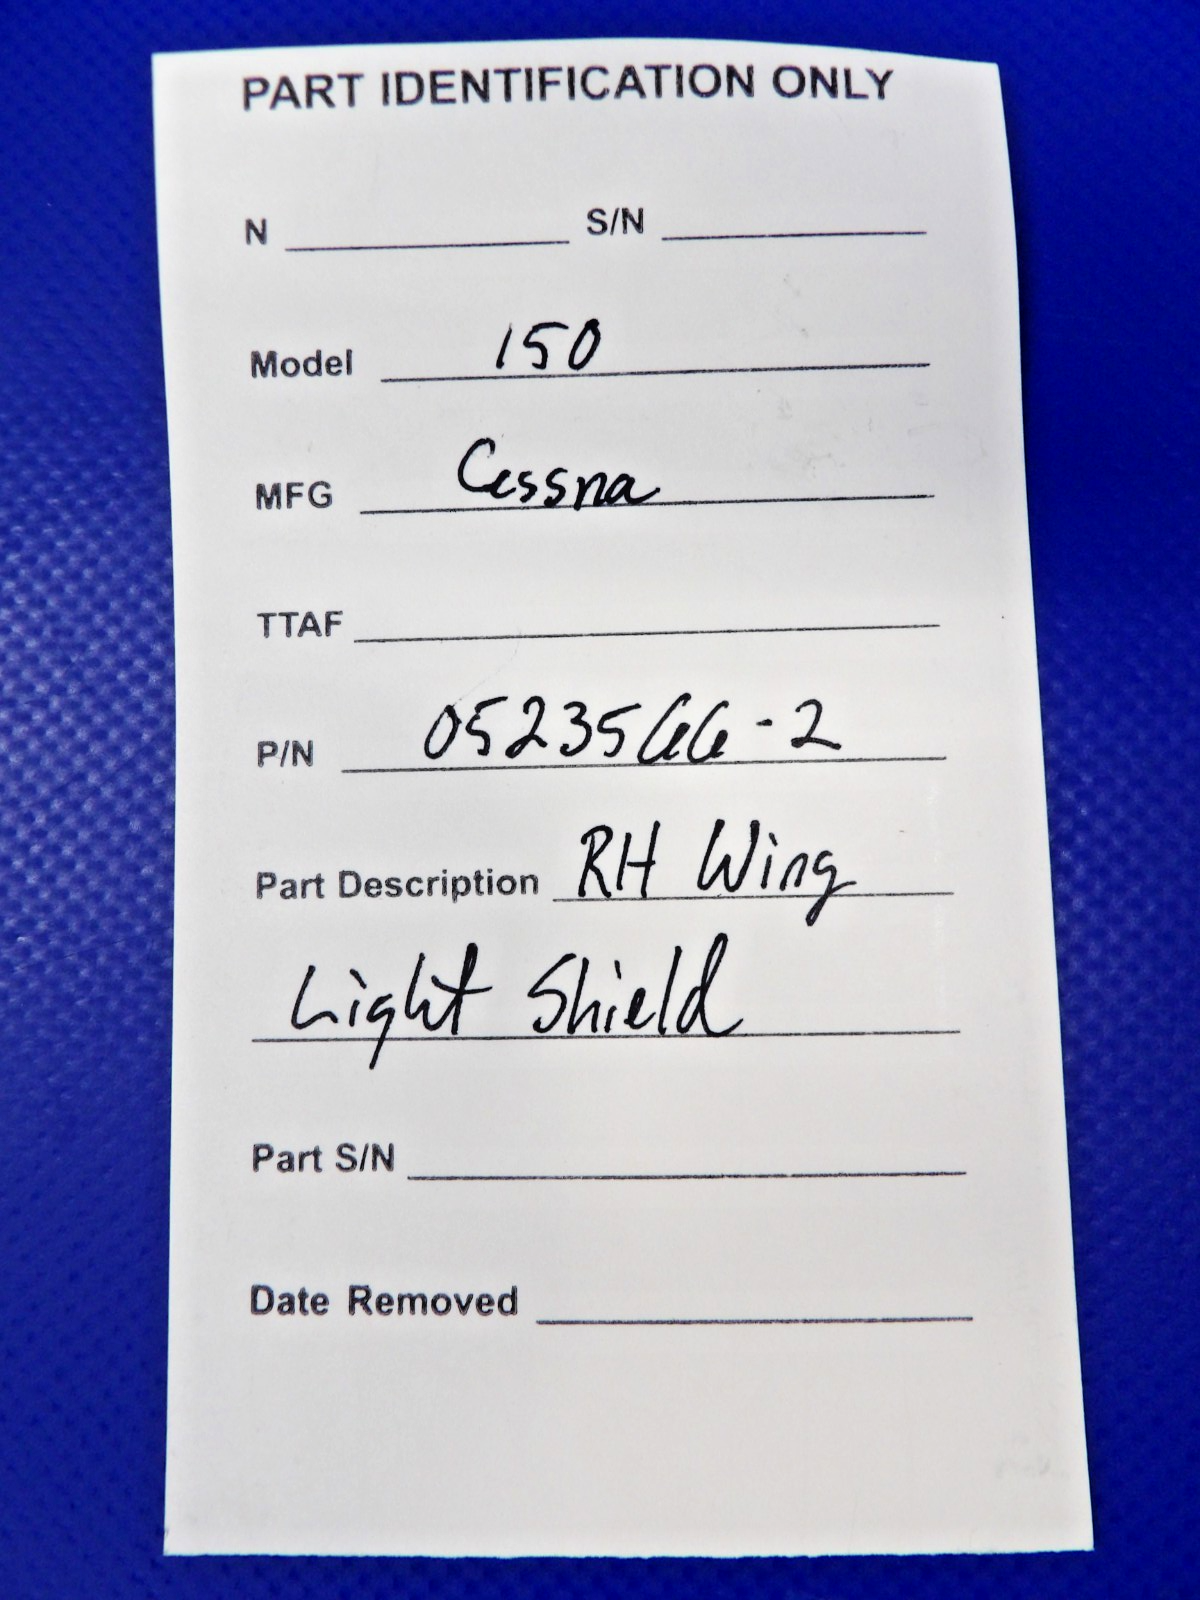 PART IDENTIFICATION ONLY
N S/N
Model 150
MFG Cessna
TTAF
P/N 0523566-2
Part Description RH Wing
Light Shield
Part S/N
Date Removed